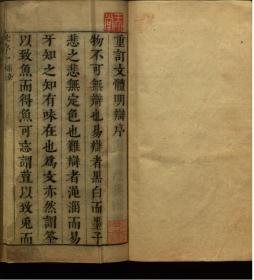 重訂文體明辯序
物不可無辯也易辯者黑白而墨子
悲之悲無定色也難辯者淄澠而易
牙知之知有味在也為文亦然謂筌
以致魚而得魚可忘謂蹄以致兎而